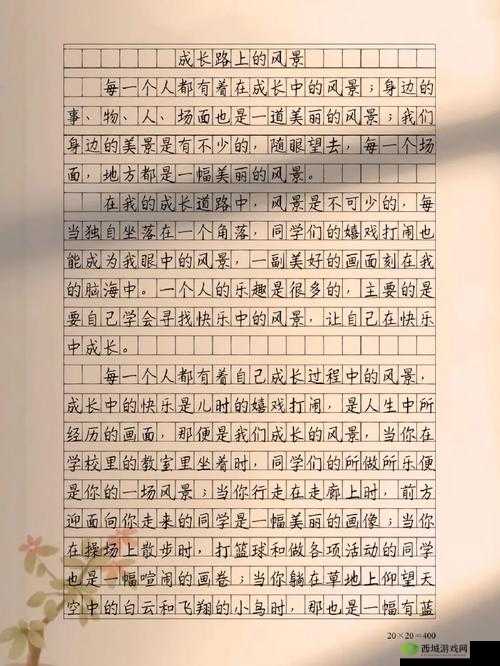 成长路上的风景
每一个人都有着在成长中的风景；身边的
事、物、人、场面也是一道美丽的风景；我们
身边的美景是有不少的，随眼望去，每一个场
面，地方都是一幅美丽的风景。
在我的成长道路中，风景是不可少的，每
当独自坐落在一个角落，同学们的嬉戏打闹也
能成为我眼中的风景，一副美好的画面刻在我
的脑海中。一个人的乐趣是很多的，主要的是
要自己学会寻找快乐中的风景，让自己在快乐
中成长。
每一个人都有着自己成长过程中的风景，
成长中的快乐是儿时的嬉戏打闹，是人生中所
经历的画面，那便是我们成长的风景，当你在
学校里的教室里坐着时，同学们的所做所乐便
是你的一场风景；当你行走在走廊上时，前方
迎面向你走来的同学是一幅美丽的画像；当你
在操场上散步时，打篮球和做各项活动的同学
也是一幅喧闹的画卷；当你躺在草地上仰望天
空中的白云和飞翔的小鸟时，那也是一幅有蓝
20×20=400
西城游戏网